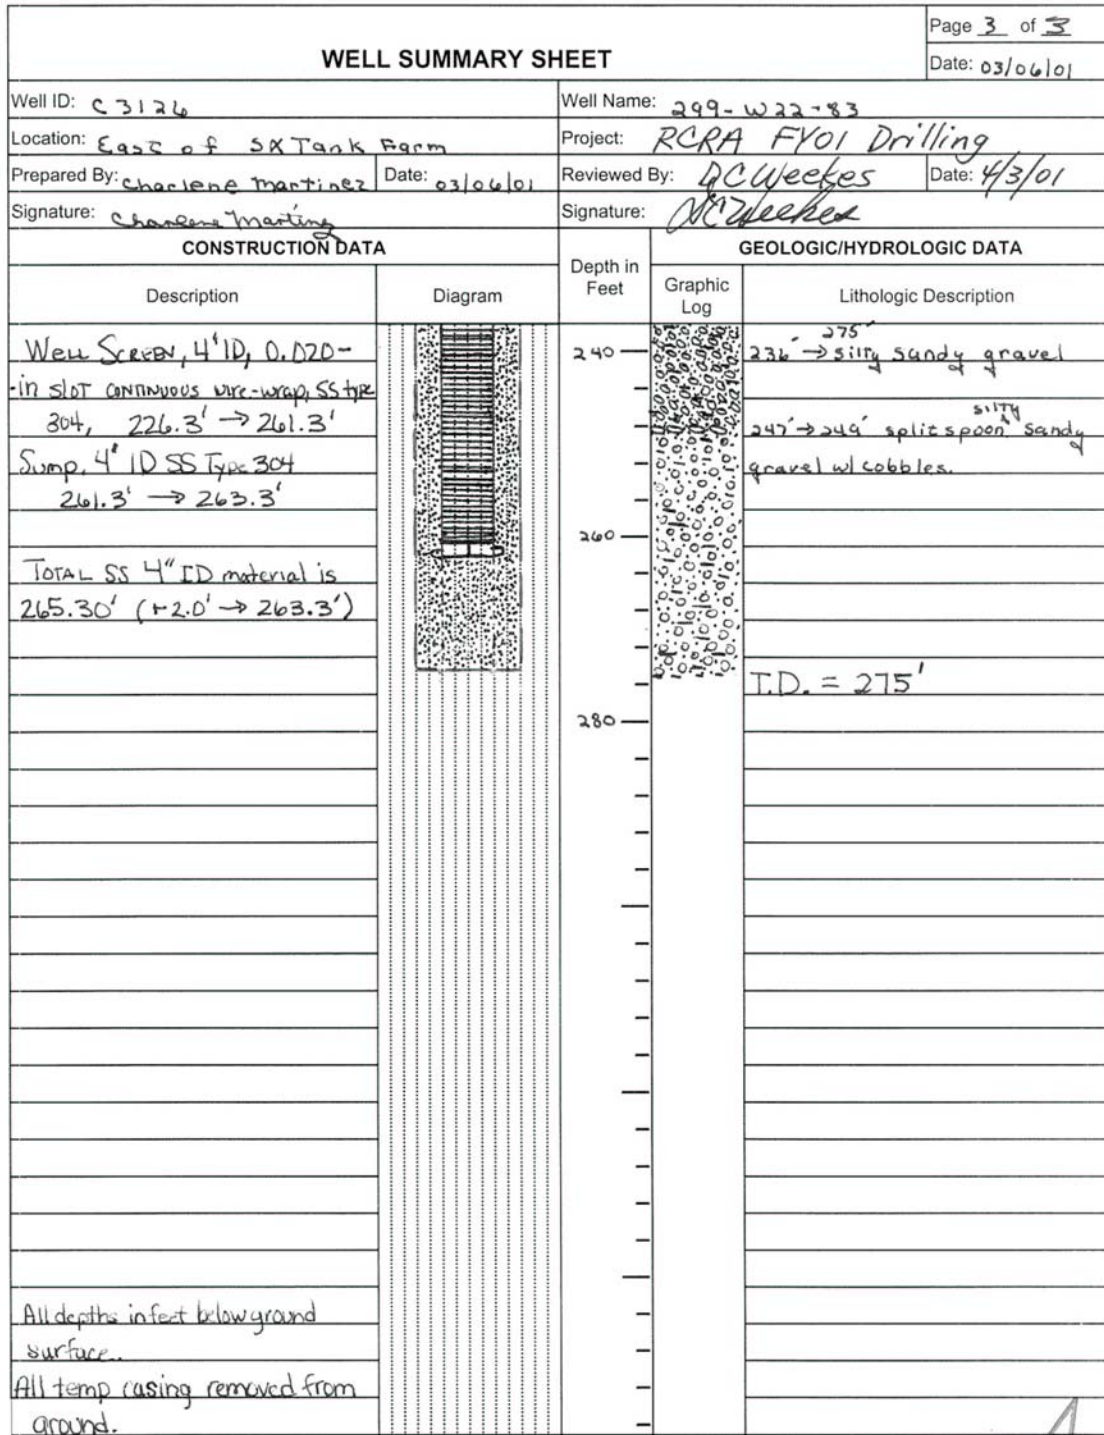 WELL SUMMARY SHEET
Page 3 of 3
Date: 03/06/01
Well ID: C3126
Well Name: 299-W22-83
Location: East of SX Tank Farm
Project: RCRA FY01 Drilling
Prepared By: Charlene Martinez
Date: 03/06/01
Reviewed By: DC Weekes
Date: 4/3/01
Signature: Charlene Martinez
Signature: DC Weekes
CONSTRUCTION DATA
GEOLOGIC/HYDROLOGIC DATA
Description
Diagram
Depth in
Feet
Graphic
Log
Lithologic Description
Well Screen, 4" ID, 0.020-
-in slot continuous wire-wrap, SS type
304, 226.3' → 261.3'
Sump, 4" ID SS Type 304
261.3' → 263.3'
TOTAL SS 4" ID material is
265.30' (+2.0' → 263.3')
All depths in feet below ground
surface.
All temp casing removed from
ground.
240
260
280
275'
236' → silty sandy gravel
silty
247' → 249' split spoon, sandy
gravel w/ cobbles.
T.D. = 275'